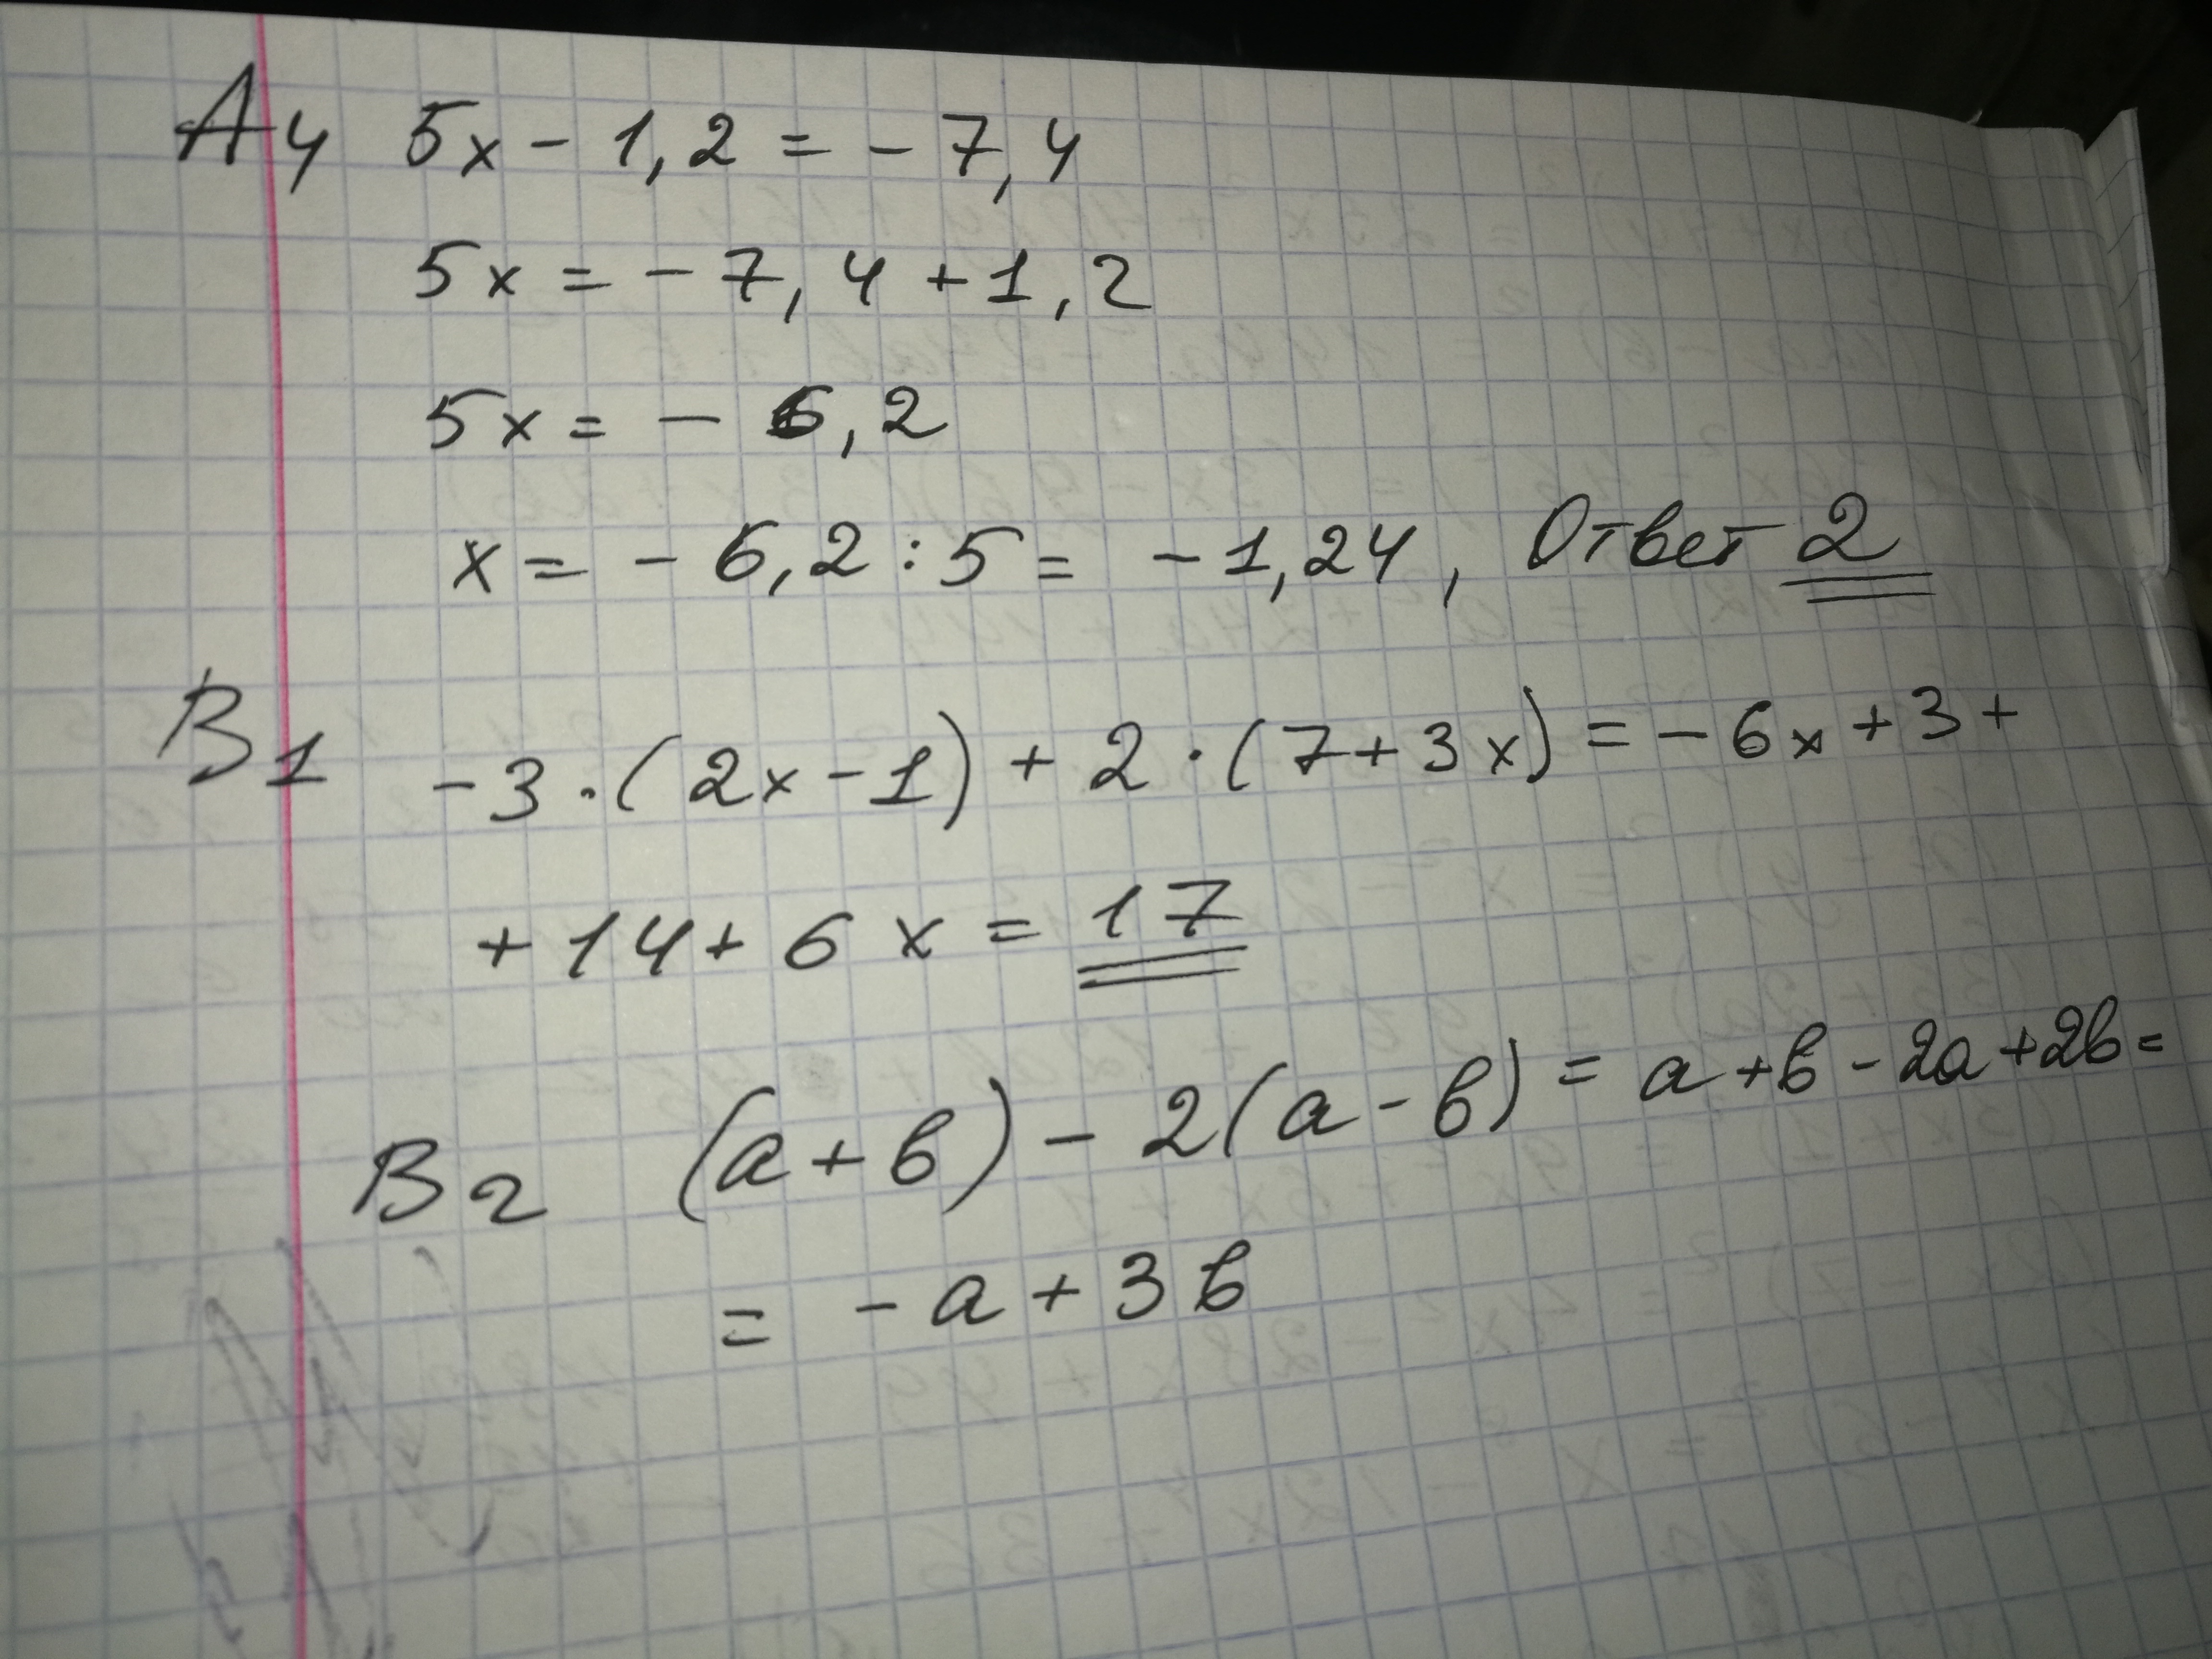 А4 5x - 1,2 = - 7,4
5x = - 7,4 + 1,2
5x = - 6,2
x = - 6,2 : 5 = - 1,24, Ответ 2
В1 - 3 · (2x - 1) + 2 · (7 + 3x) = - 6x + 3 +
+ 14 + 6x = 17
В2 (a + b) - 2(a - b) = a + b - 2a + 2b =
= - a + 3b